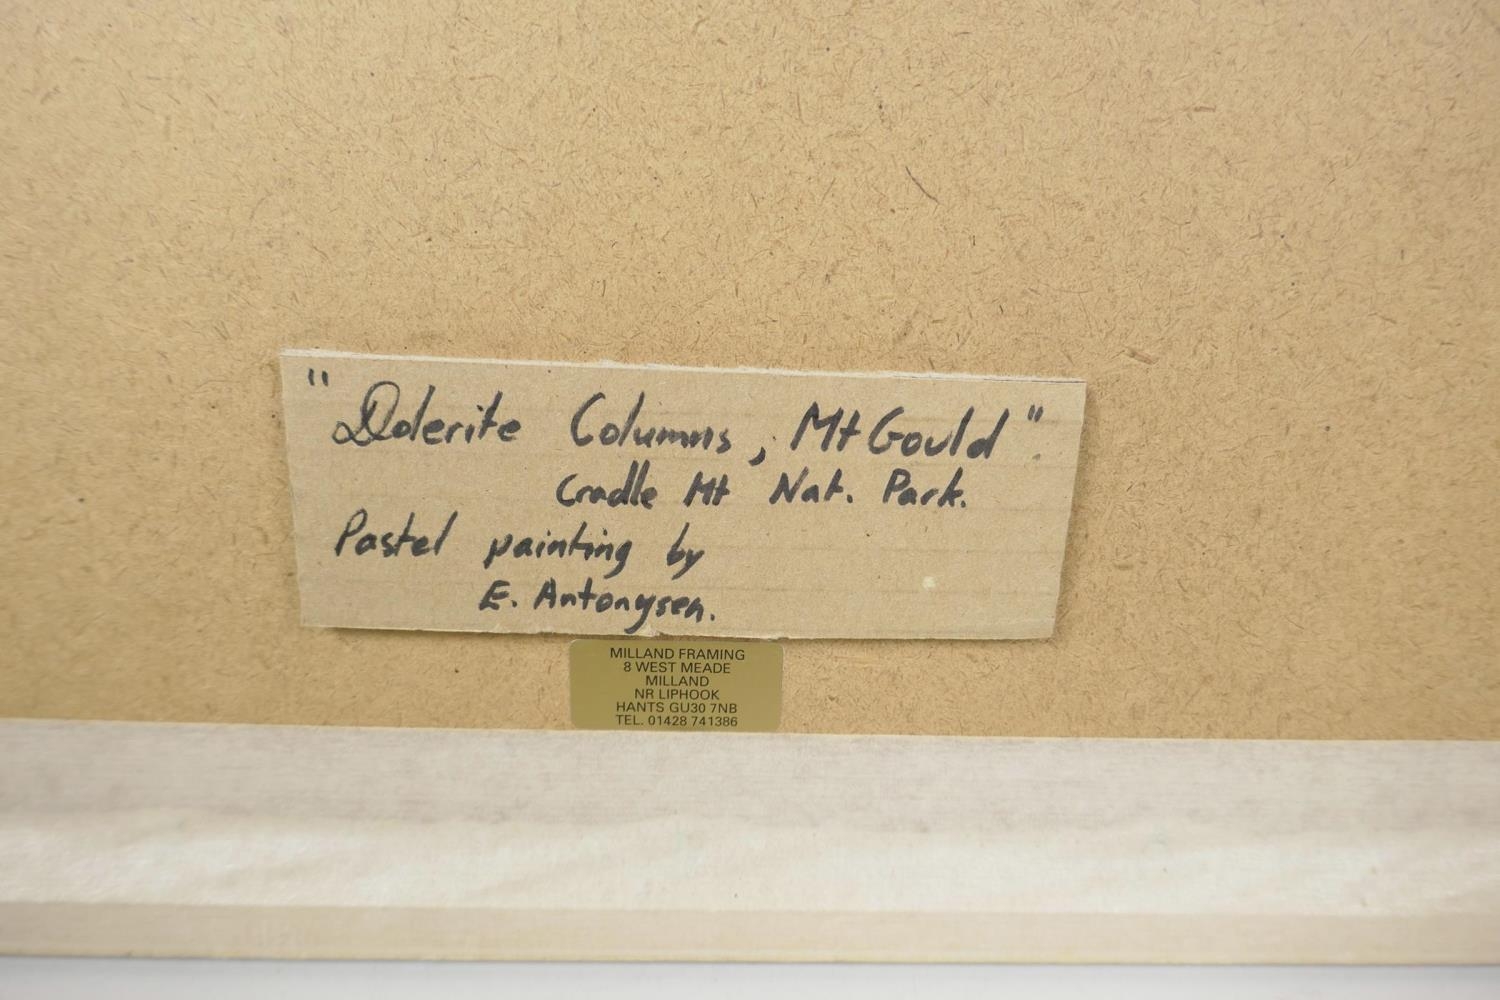 "Dolerite Columns, Mt Gould".
Cradle Mt Nat. Park.
Pastel painting by
E. Antonysen.
MILLAND FRAMING
8 WEST MEADE
MILLAND
NR LIPHOOK
HANTS GU30 7NB
TEL. 01428 741386